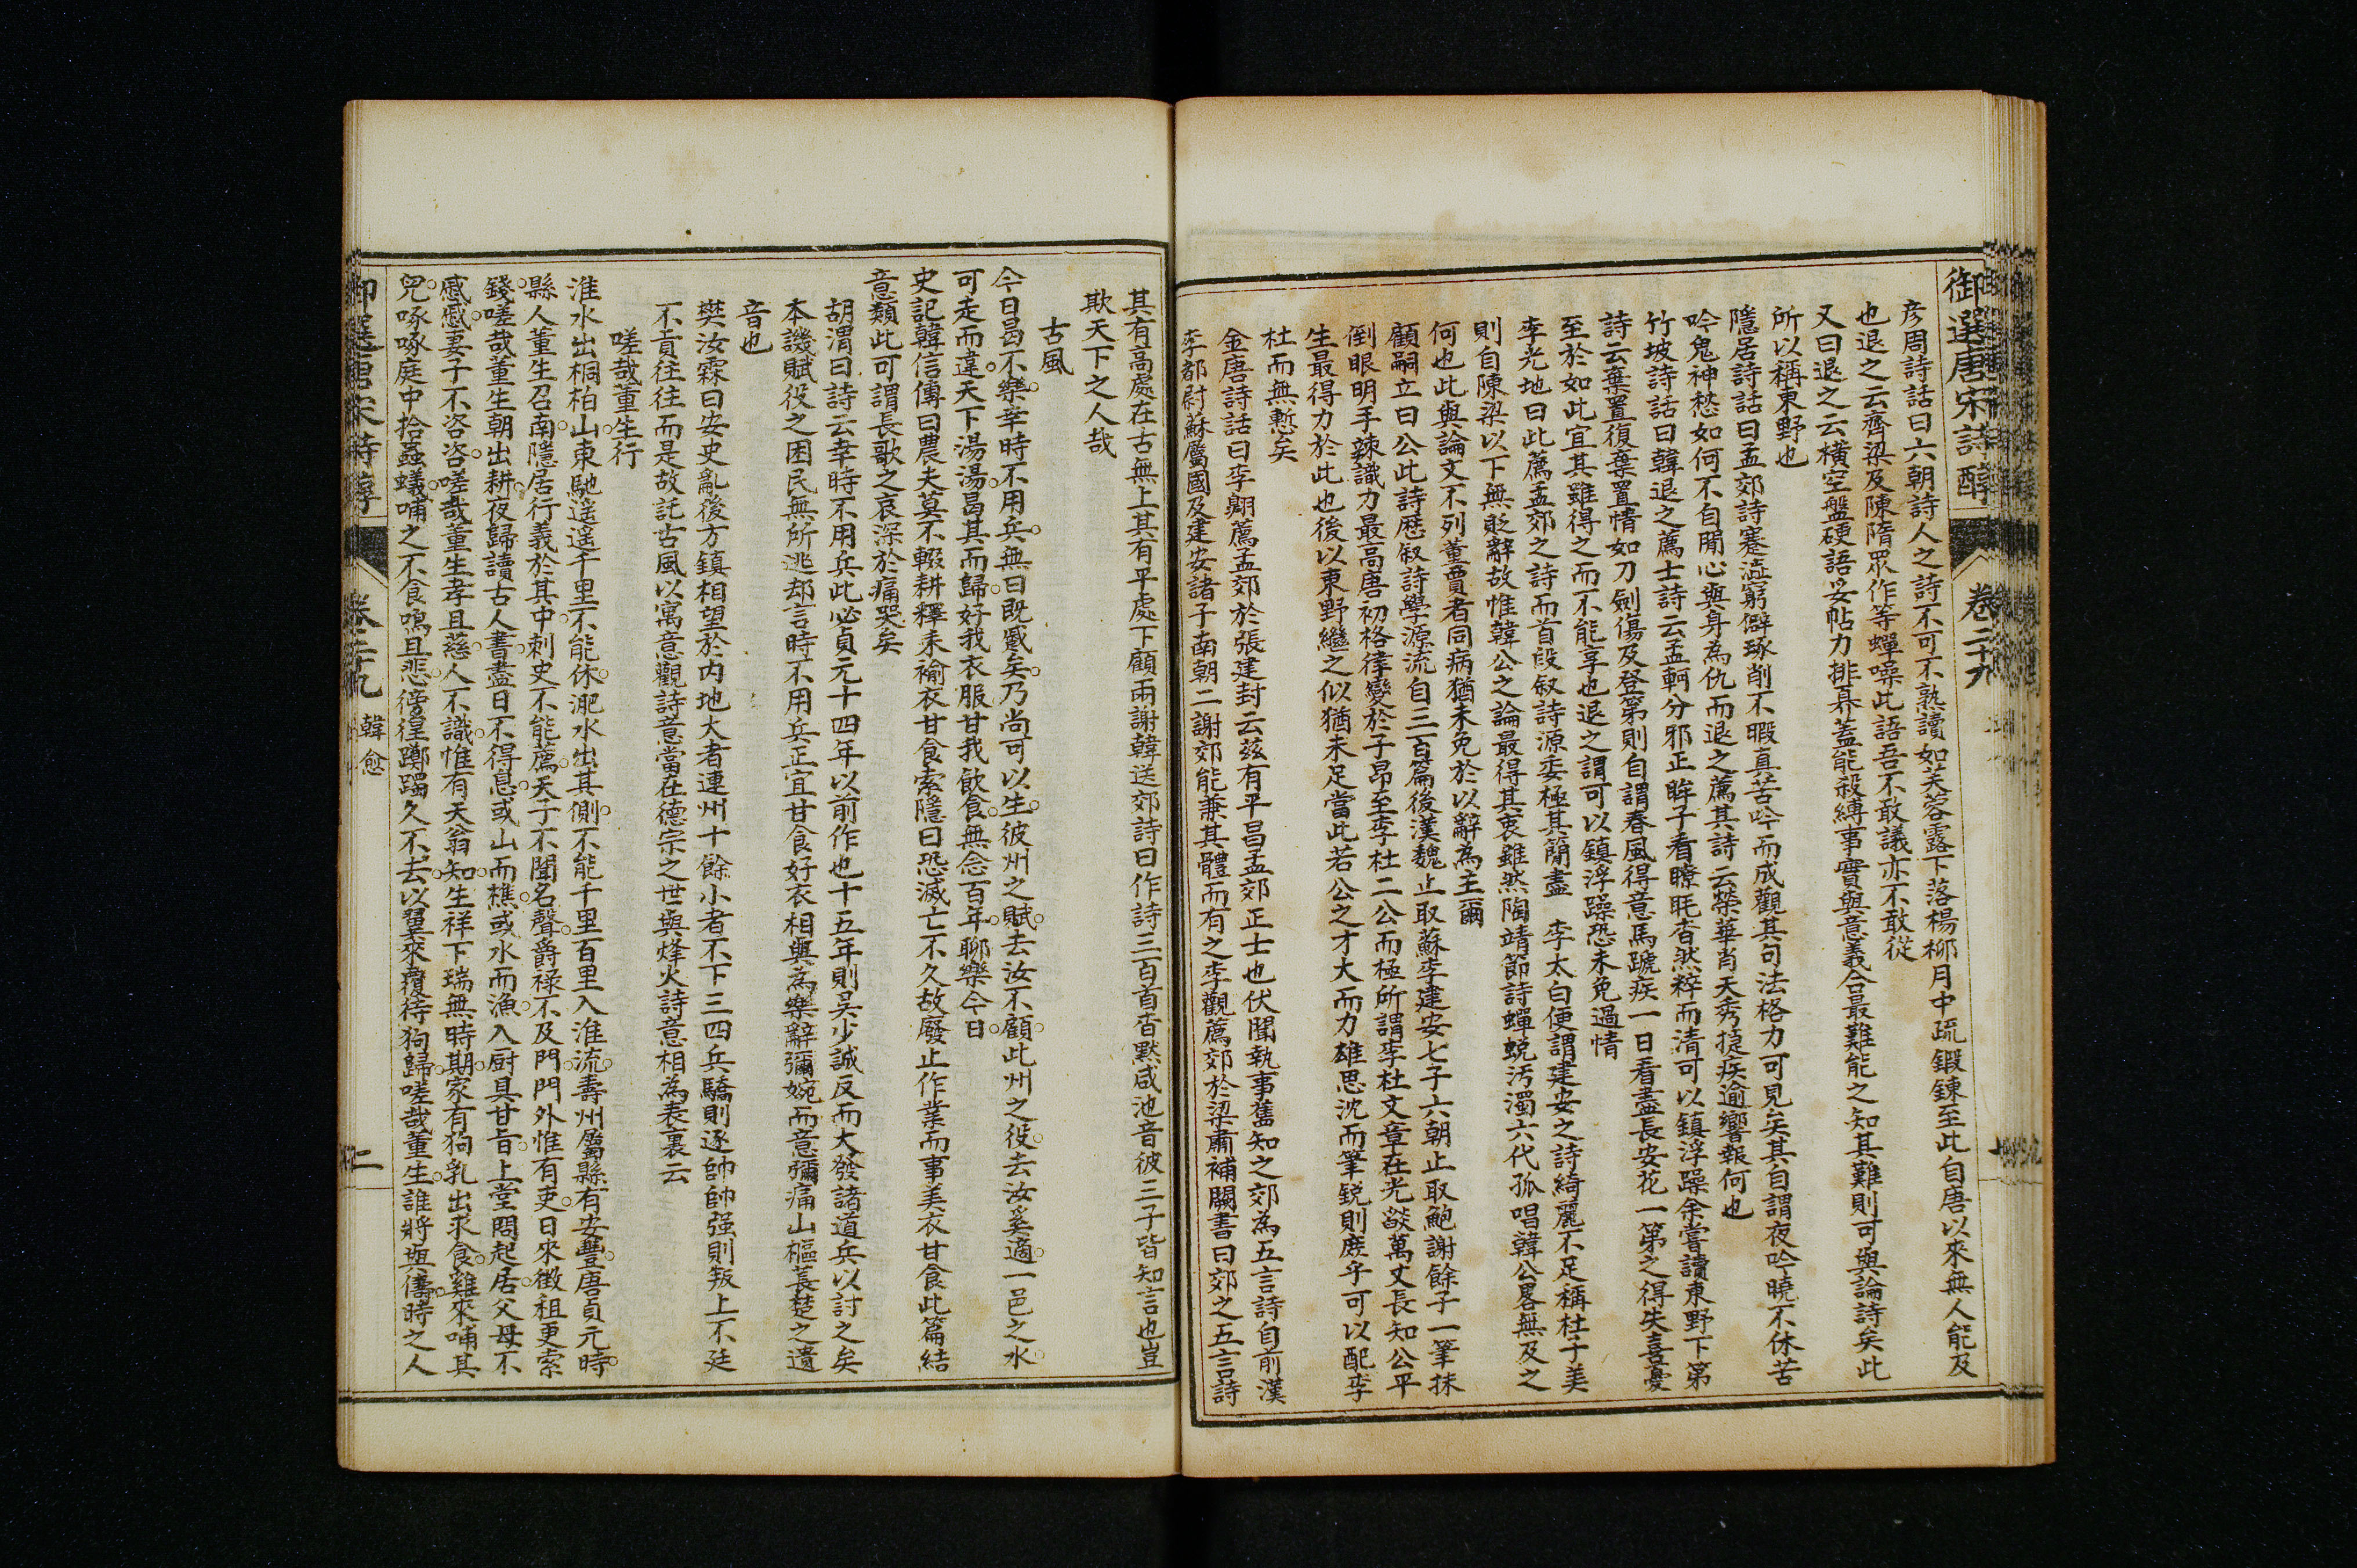 御選唐宋詩醇 卷二十九
彦周詩話曰六朝詩人之詩不可不熟讀如芙蓉露下落楊柳月中疏鍛鍊至此自唐以來無人能及
也退之云齊梁及陳隋眾作等蟬噪此語吾不敢議亦不敢從
又曰退之云横空盤硬語妥帖力排奡蓋能殺縛事實與意義合最難能之知其難則可與論詩矣此
所以稱東野也
隱居詩話曰孟郊詩蹇澁窮僻琢削不暇真苦吟而成觀其句法格力可見矣其自謂夜吟曉不休苦
吟鬼神愁如何不自閒心與身為仇而退之薦其詩云榮華肖天秀捷疾逾響報何也
竹坡詩話曰韓退之薦士詩云孟軻分邪正眸子看瞭眊杳然粹而清可以鎮浮躁余嘗讀東野下第
詩云棄置復棄置情如刀劍傷及登第則自謂春風得意馬蹄疾一日看盡長安花一第之得失喜憂
至於如此宜其雖得之而不能享也退之謂可以鎮浮躁恐未免過情
李光地曰此薦孟郊之詩而首段叙詩源委極其簡盡 李太白便謂建安之詩綺麗不足稱杜子美
則自陳梁以下無貶辭故惟韓公之論最得其衷雖然陶靖節詩蟬蛻汚濁六代孤唱韓公畧無及之
何也此與論文不列董賈者同病猶未免於以辭為主爾
顧嗣立曰公此詩歷叙詩學源流自三百篇後漢魏止取蘇李建安七子六朝止取鮑謝餘子一筆抹
倒眼明手辣識力最高唐初格律變於子昂至李杜二公而極所謂李杜文章在光燄萬丈長知公平
生最得力於此也後以東野繼之似猶未足當此若公之才大而力雄思沈而筆銳則庶乎可以配李
杜而無慙矣
金唐詩話曰李翺薦孟郊於張建封云兹有平昌孟郊正士也伏聞執事舊知之郊為五言詩自前漢
李都尉蘇屬國及建安諸子南朝二謝郊能兼其體而有之李觀薦郊於梁肅補闕書曰郊之五言詩
其有高處在古無上其有平處下顧兩謝韓送郊詩曰作詩三百首杳默咸池音彼三子皆知言也豈
欺天下之人哉
古風
今日曷不樂幸時不用兵無曰既蹙矣乃尚可以生彼州之賦去汝不顧此州之役去汝奚適一邑之水
可走而違天下湯湯曷其而歸好我衣服甘我飲食無念百年聊樂今日
史記韓信傳曰農夫莫不輟耕釋耒褕衣甘食索隱曰恐滅亡不久故廢止作業而事美衣甘食此篇結
意類此可謂長歌之哀深於痛哭矣
胡渭曰詩云幸時不用兵此必貞元十四年以前作也十五年則吳少誠反而大發諸道兵以討之矣
本譏賦役之困民無所逃却言時不用兵正宜甘食好衣相與為樂辭彌婉而意彌痛山樞萇楚之遺
音也
樊汝霖曰安史亂後方鎮相望於内地大者連州十餘小者不下三四兵驕則逐帥帥强則叛上不廷
不貢往往而是故託古風以寓意觀詩意當在德宗之世與烽火詩意相為表裏云
嗟哉董生行
淮水出桐柏山東馳遥遥千里不能休淝水出其側不能千里百里入淮流壽州屬縣有安豐唐貞元時
縣人董生召南隱居行義於其中刺史不能薦天子不聞名聲爵祿不及門門外惟有吏日來徵租更索
錢嗟哉董生朝出耕夜歸讀古人書盡日不得息或山而樵或水而漁入厨具甘旨上堂問起居父母不
慼慼妻子不咨咨嗟哉董生孝且慈人不識惟有天翁知生祥下瑞無時期家有狗乳出求食雞來哺其
兒啄啄庭中拾蟲蟻哺之不食鳴且悲徬徨躑躅久不去以翼來覆待狗歸嗟哉董生誰將與儔時之人
御選唐宋詩醇 卷二十九 韓愈 二